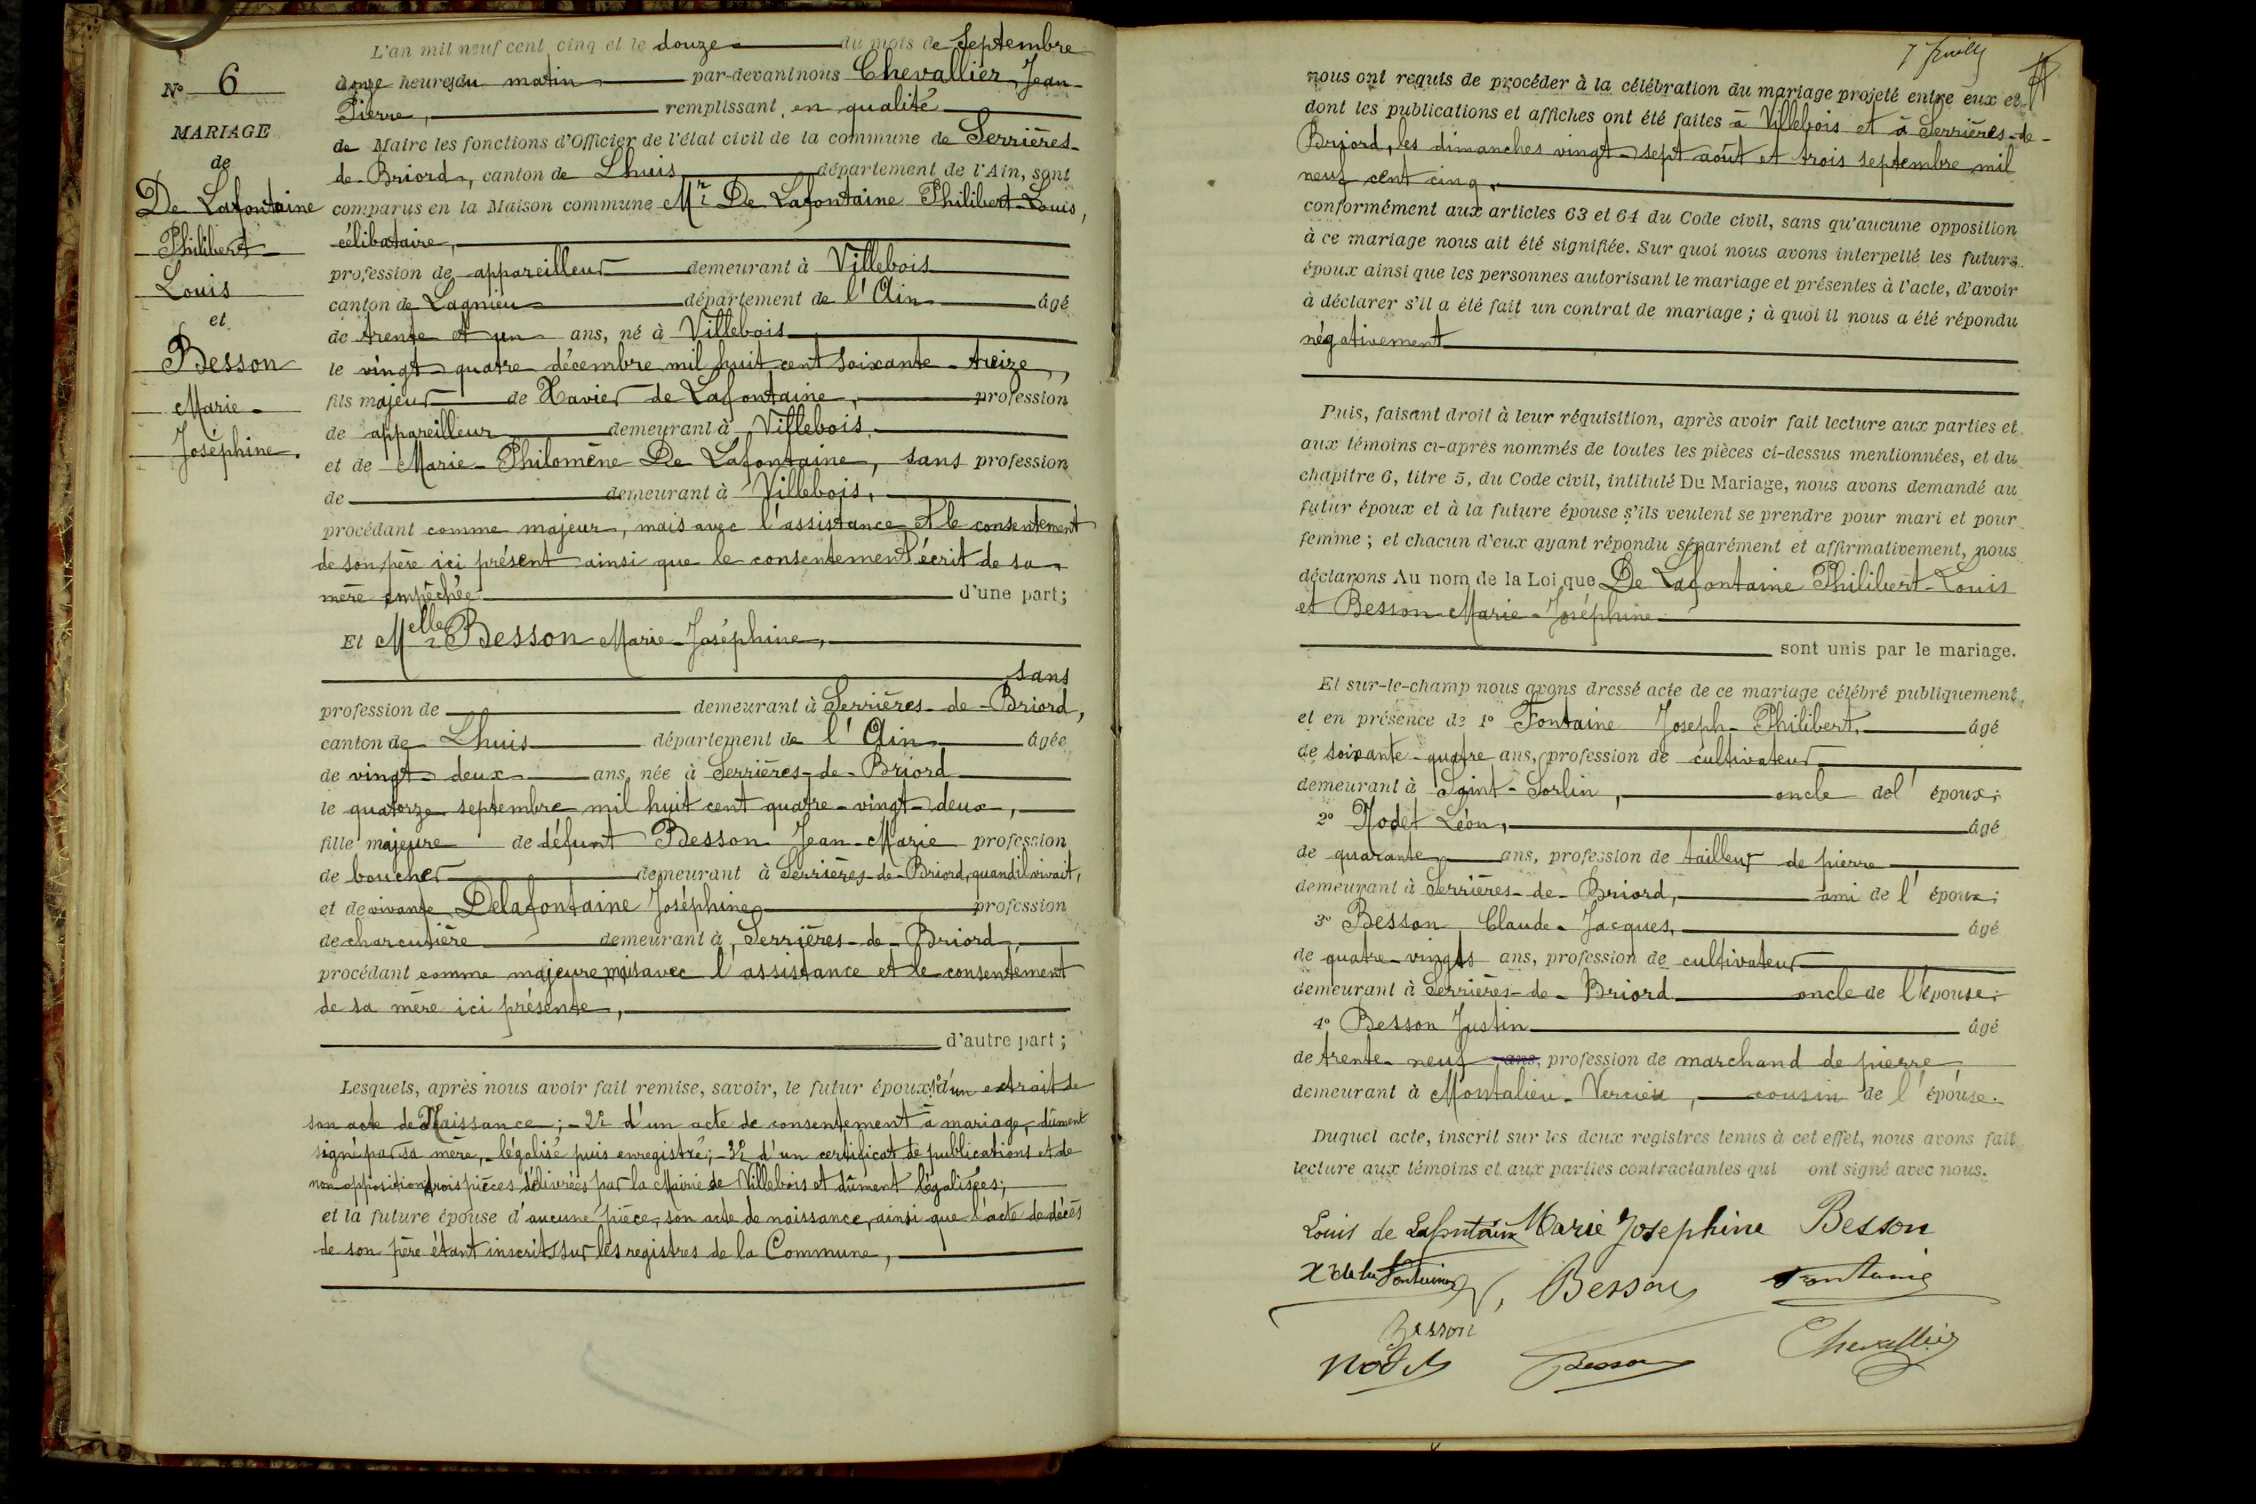 L'an mil neuf cent cinq et le douze du mois de Septembre
onze heures du matin par-devant nous Chevallier Jean-
Pierre, remplissant en qualité
de Maire les fonctions d'Officier de l'état civil de la commune de Serrières-
de-Briord, canton de Lhuis département de l'Ain, sont
comparus en la Maison commune Mr De Lafontaine Philibert-Louis,
célibataire,
profession de appareilleur demeurant à Villebois
canton de Lagnieu département de l'Ain âgé
de trente et un ans, né à Villebois
le vingt-quatre décembre mil huit cent soixante-treize,
fils majeur de Xavier de Lafontaine, profession
de appareilleur demeurant à Villebois
et de Marie-Philomène De Lafontaine, sans profession
de demeurant à Villebois,
procédant comme majeur, mais avec l'assistance et le consentement
de son père ici présent ainsi que le consentement écrit de sa
mère empêchée d'une part;
Et Melle Besson Marie-Joséphine,
sans
profession de demeurant à Serrières-de-Briord,
canton de Lhuis département de l'Ain âgée
de vingt-deux ans, née à Serrières-de-Briord
le quatorze septembre mil huit cent quatre-vingt-deux,
fille majeure de défunt Besson Jean-Marie profession
de boucher demeurant à Serrières-de-Briord, quand il vivait,
et de vivante Delafontaine Joséphine profession
de charcutière demeurant à Serrières-de-Briord,
procédant comme majeure, mais avec l'assistance et le consentement
de sa mère ici présente,
d'autre part;
Lesquels, après nous avoir fait remise, savoir, le futur époux: 1º d'un extrait de
son acte de Naissance; - 2º d'un acte de consentement à mariage, dûment
signé par sa mère, légalisé puis enregistré; - 3º d'un certificat de publications et de
non opposition, trois pièces délivrées par la Mairie de Villebois et dûment légalisées;
et la future épouse d'aucune pièce, son acte de naissance, ainsi que l'acte de décès
de son père étant inscrits sur les registres de la Commune,
Nº 6
MARIAGE
de
De Lafontaine
Philibert-
Louis
et
Besson
Marie-
Joséphine.
nous ont requis de procéder à la célébration du mariage projeté entre eux et
dont les publications et affiches ont été faites à Villebois et à Serrières-de-
Briord, les dimanches vingt-sept août et trois septembre mil
neuf cent cinq,
conformément aux articles 63 et 64 du Code civil, sans qu'aucune opposition
à ce mariage nous ait été signifiée. Sur quoi nous avons interpellé les futurs
époux ainsi que les personnes autorisant le mariage et présentes à l'acte, d'avoir
à déclarer s'il a été fait un contrat de mariage; à quoi il nous a été répondu
négativement
Puis, faisant droit à leur réquisition, après avoir fait lecture aux parties et
aux témoins ci-après nommés de toutes les pièces ci-dessus mentionnées, et du
chapitre 6, titre 5, du Code civil, intitulé Du Mariage, nous avons demandé au
futur époux et à la future épouse s'ils veulent se prendre pour mari et pour
femme; et chacun d'eux ayant répondu séparément et affirmativement, nous
déclarons Au nom de la Loi que De Lafontaine Philibert-Louis
et Besson Marie-Joséphine
sont unis par le mariage.
Et sur-le-champ nous avons dressé acte de ce mariage célébré publiquement
et en présence de 1º Fontaine Joseph-Philibert, âgé
de soixante-quatre ans, profession de cultivateur
demeurant à Saint-Sorlin, oncle de l'époux;
2º Nodet Léon, âgé
de quarante ans, profession de tailleur de pierre
demeurant à Serrières-de-Briord, ami de l'époux;
3º Besson Claude-Jacques, âgé
de quatre-vingts ans, profession de cultivateur
demeurant à Serrières-de-Briord oncle de l'épouse;
4º Besson Justin âgé
de trente-neuf ans, profession de marchand de pierre,
demeurant à Montalieu-Vercieu, cousin de l'épouse.
Duquel acte, inscrit sur les deux registres tenus à cet effet, nous avons fait
lecture aux témoins et aux parties contractantes qui ont signé avec nous.
Louis de Lafontaine Marie Josephine Besson
X de la Fontaine Besson Fontaine
Besson
Nodet Besson Chevallier